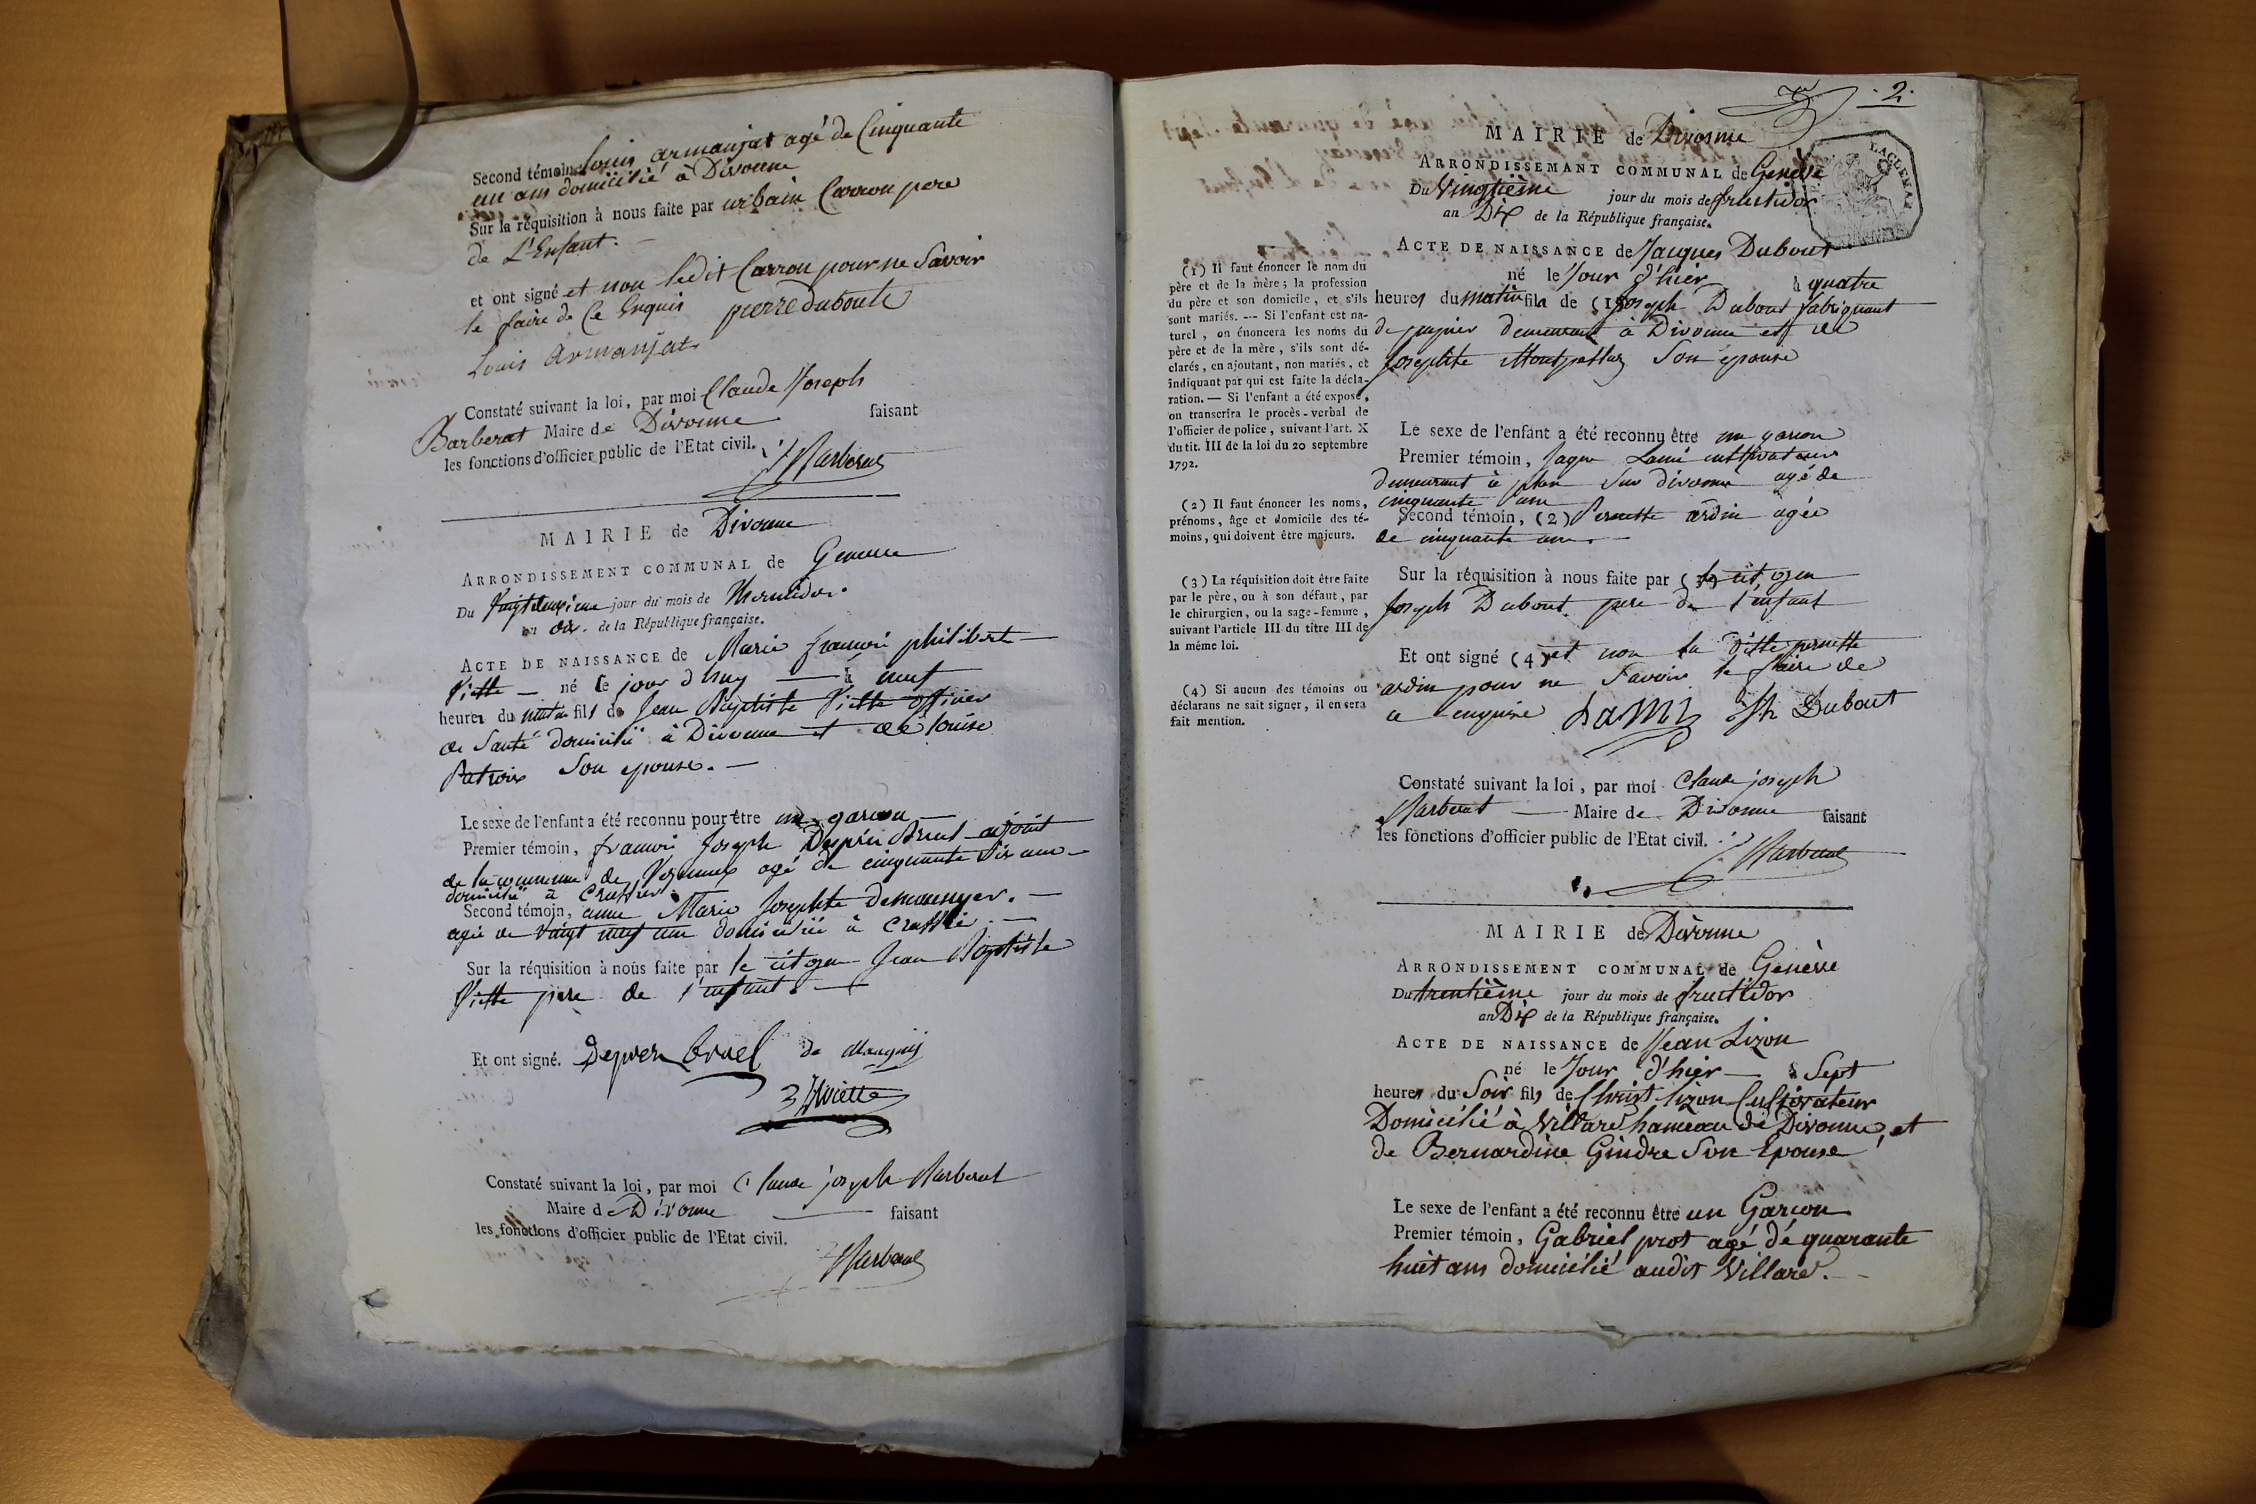 Second témoin, Louis armanjat agé de Cinquante
un ans domicilié à Divonne
Sur la réquisition à nous faite par urbain Carron pere
de L'Enfant.
et ont signé et non ledit Carron pour ne Savoir
le faire de Ce Enquis pierre duboule
Louis Armanjat
Constaté suivant la loi, par moi Claude Joseph
Barberat Maire de Divonne faisant
les fonctions d'officier public de l'Etat civil. Barberat
MAIRIE de Divonne
ARRONDISSEMENT COMMUNAL de Geneve
Du Vingt deuxieme jour du mois de Thermidor.
an dix. de la République française.
ACTE DE NAISSANCE de Marie françois philibert
Viette né le jour d'huy à neuf
heures du matin fils de Jean Baptiste Viette officier
de Santé domicilié à Divonne et de louise
Patroix Son epouse.
Le sexe de l'enfant a été reconnu pour être un garcon
Premier témoin, francois Joseph Deprez Bruel adjoint
de la commune de agé de cinquante Six ans
domicilié à Crassier
Second témoin, anne Marie Josephte
agée de Vaingt neuf ans domiciliée à Crassie.
Sur la réquisition à nous faite par le citoyen Jean Baptiste
Viette pere de l'enfant.
Et ont signé. Deprez bruel de
Viette
Constaté suivant la loi, par moi Claude joseph Barberat
Maire de Divonne faisant
les fonctions d'officier public de l'Etat civil.
Barberat
. 2.
MAIRIE de Divonne
ARRONDISSEMANT COMMUNAL de Genève
Du Vingtième jour du mois de fructidor
an Dix de la République française.
ACTE DE NAISSANCE de Jacques Dubout
né le Jour d'hier à quatre
heures du matin fils de (1) Joseph Dubout fabriquant
de papier demeurant à Divonne et de
Josephte Son epouse
(1) Il faut énoncer le nom du
père et de la mère ; la profession
du père et son domicile, et s'ils
sont mariés. --- Si l'enfant est na-
turel, on énoncera les noms du
père et de la mère, s'ils sont dé-
clarés, en ajoutant, non mariés, et
indiquant par qui est faite la décla-
ration. — Si l'enfant a été exposé,
on transcrira le procès-verbal de
l'officier de police, suivant l'art. X
du tit. III de la loi du 20 septembre
1792.
Le sexe de l'enfant a été reconnu être un garcon
Premier témoin, Jaque Lami cultivateur
demeurant à plan Sur divonne agé de
cinquante ans
Second témoin, (2) Pernette ardin agée
de cinquante ans.
(2) Il faut énoncer les noms,
prénoms, âge et domicile des té-
moins, qui doivent être majeurs.
Sur la réquisition à nous faite par (3) le citoyen
Joseph Dubout pere de l'enfant
(3) La réquisition doit être faite
par le père, ou à son défaut, par
le chirurgien, ou la sage-femme,
suivant l'article III du titre III de
la même loi.
Et ont signé (4) et non la ditte pernette
ardin pour ne Savoir le faire de
ce enquise LAMI Jph Dubout
(4) Si aucun des témoins ou
déclarans ne sait signer, il en sera
fait mention.
Constaté suivant la loi, par moi Claude joseph
Barberat Maire de Divonne faisant
les fonctions d'officier public de l'Etat civil.
Barberat
MAIRIE de Divonne
ARRONDISSEMENT COMMUNAL de Genève
Du trentième jour du mois de fructidor
an Dix de la République française.
ACTE DE NAISSANCE de Jean Lizon
né le Jour d'hier à Sept
heures du Soir fils de Christ lizon Cultivateur
Domicilié à Villard hameau de Divonne, et
de Bernardine Gindre Son Epouse
Le sexe de l'enfant a été reconnu être un Garcon
Premier témoin, Gabriel prot agé dé quarante
huit ans domicilié audit Villard.